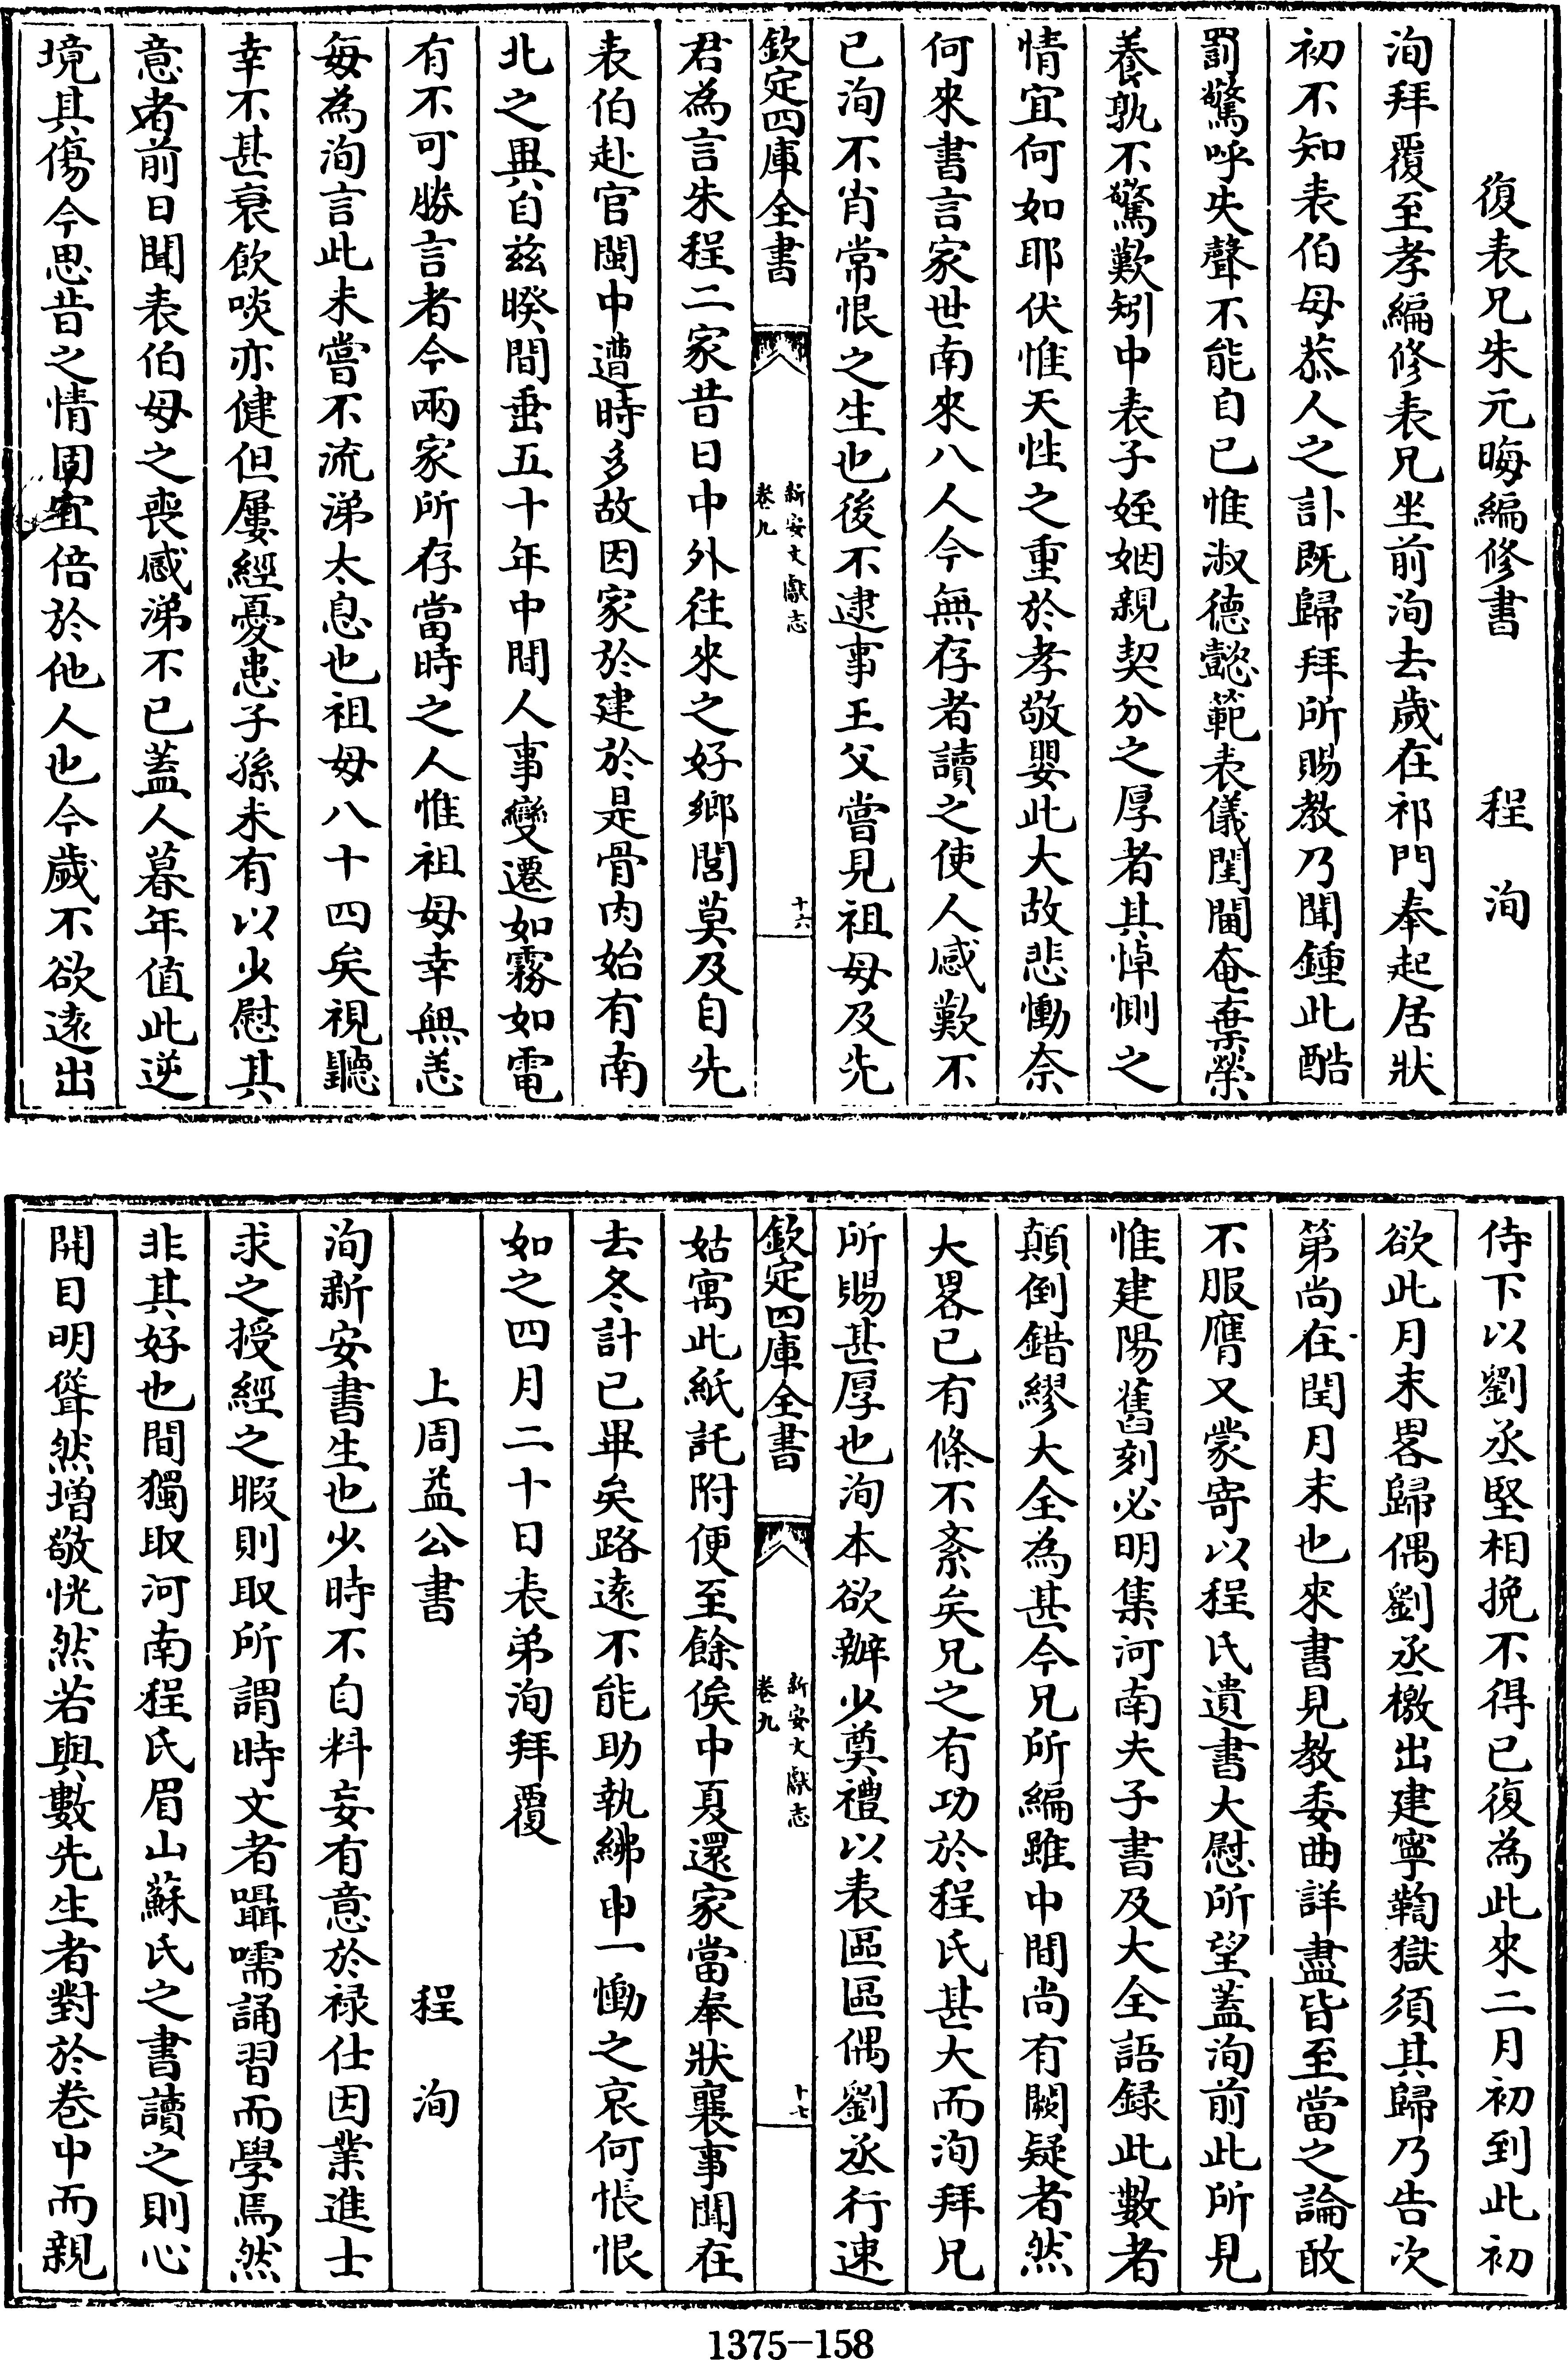 復表兄朱元晦編修書　程洵
洵拜覆至孝編修表兄坐前洵去歲在祁門奉起居狀
初不知表伯母恭人之訃既歸拜所賜教乃聞鍾此酷
罰驚呼失聲不能自已惟淑德懿範表儀閨閫奄棄榮
養孰不驚歎矧中表子姪姻親契分之厚者其悼惻之
情宜何如耶伏惟天性之重於孝敬嬰此大故悲慟奈
何來書言家世南來八人今無存者讀之使人感歎不
已洵不肖常恨之生也後不逮事王父嘗見祖母及先
欽定四庫全書　新安文獻志　卷九　十六
君為言朱程二家昔日中外往來之好鄉閭莫及自先
表伯赴官閩中遭時多故因家於建於是骨肉始有南
北之異自茲暌間垂五十年中間人事變遷如霧如電
有不可勝言者今兩家所存當時之人惟祖母幸無恙
每為洵言此未嘗不流涕太息也祖母八十四矣視聽
幸不甚衰飲啖亦健但屢經憂患子孫未有以少慰其
意者前日聞表伯母之喪感涕不已蓋人暮年值此逆
境其傷今思昔之情固宜倍於他人也今歲不欲遠出
侍下以劉丞堅相挽不得已復為此來二月初到此初
欲此月末畧歸偶劉丞檄出建寧鞫獄須其歸乃告次
第尚在閏月末也來書見教委曲詳盡皆至當之論敢
不服膺又蒙寄以程氏遺書大慰所望蓋洵前此所見
惟建陽舊刻必明集河南夫子書及大全語録此數者
顛倒錯繆大全為甚今兄所編雖中間尚有闕疑者然
大畧已有條不紊矣兄之有功於程氏甚大而洵拜兄
所賜甚厚也洵本欲辦少奠禮以表區區偶劉丞行速
欽定四庫全書　新安文獻志　卷九　十七
姑寓此紙託附便至餘俟中夏還家當奉狀襄事聞在
去冬計已畢矣路遠不能助執紼申一慟之哀何悵恨
如之四月二十日表弟洵拜覆
上周益公書　程洵
洵新安書生也少時不自料妄有意於禄仕因業進士
求之授經之暇則取所謂時文者囁嚅誦習而學焉然
非其好也間獨取河南程氏眉山蘇氏之書讀之則心
開目明聳然增敬恍然若與數先生者對於卷中而親
1375-158